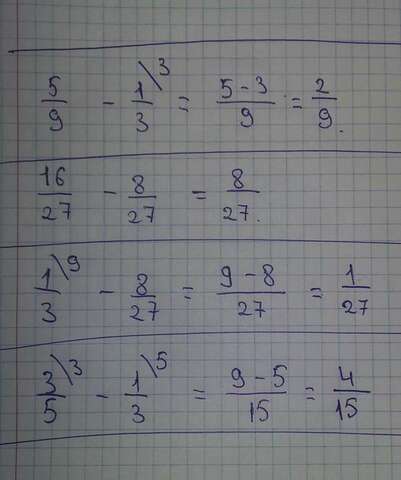 5/9 - 1\3/3 = 5-3/9 = 2/9.
16/27 - 8/27 = 8/27.
1\9/3 - 8/27 = 9-8/27 = 1/27
3\3/5 - 1\5/3 = 9-5/15 = 4/15